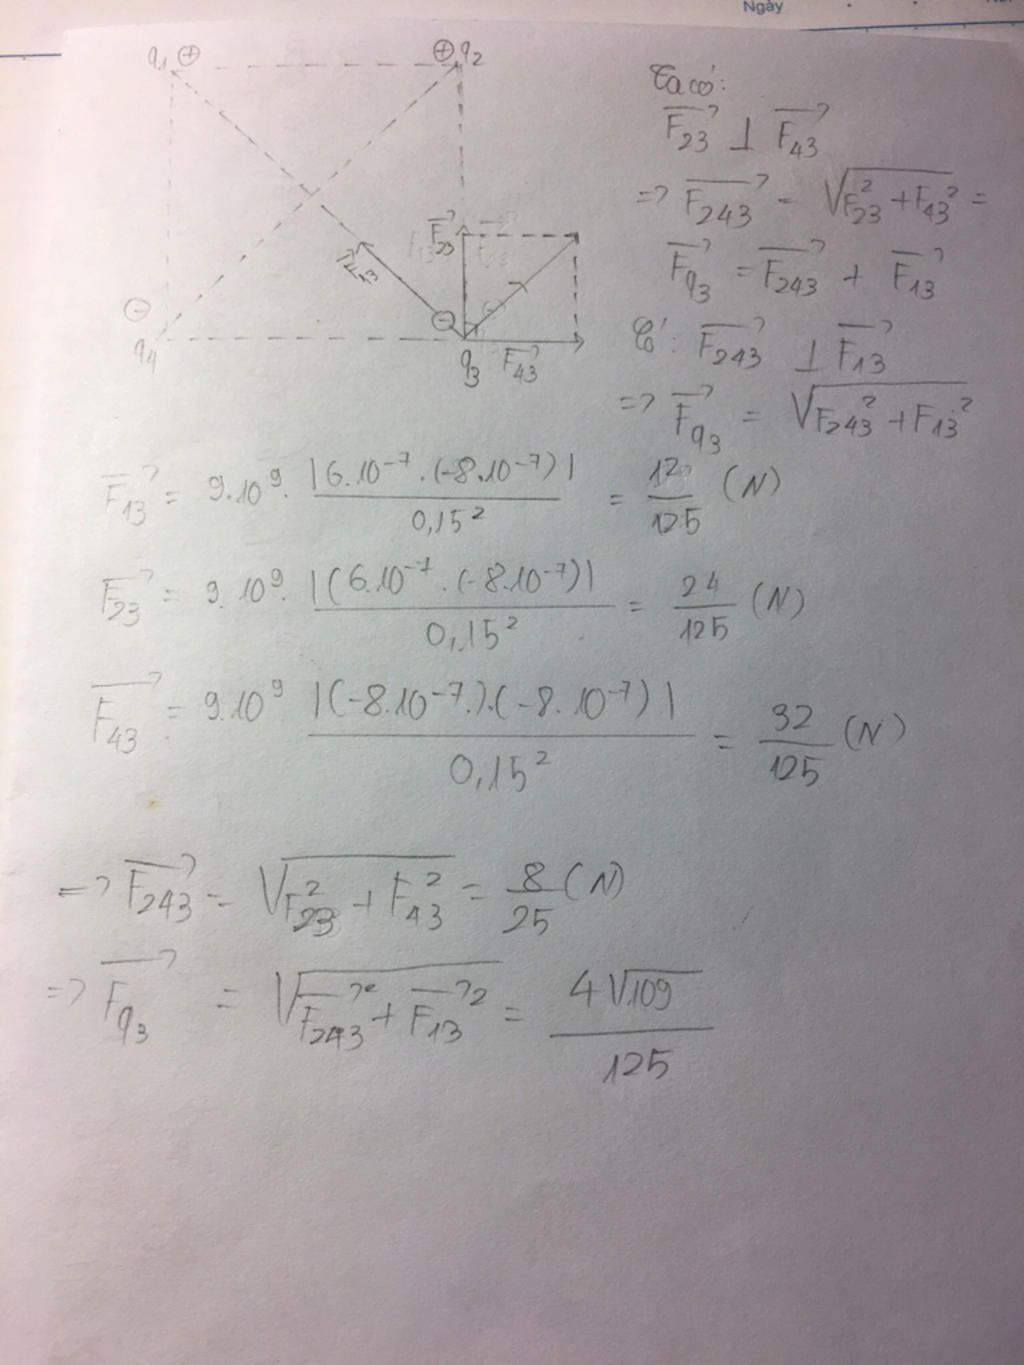 Ngày
q₁ ⊕
⊕ q₂
F₂₃⃗
F₁₃⃗
⊖
q₄
⊖
q₃
F₄₃⃗
Ta có:
F₂₃⃗ ⊥ F₄₃⃗
=> F₂₄₃⃗ = √(F₂₃² + F₄₃²) =
F_q₃⃗ = F₂₄₃⃗ + F₁₃⃗
Có: F₂₄₃⃗ ⊥ F₁₃⃗
=> F_q₃⃗ = √(F₂₄₃² + F₁₃²)
F₁₃⃗ = 9.10⁹. |6.10⁻⁷.(-8.10⁻⁷)| / 0,15² = 12/125 (N)
F₂₃⃗ = 9.10⁹. |(6.10⁻⁷.(-8.10⁻⁷)| / 0,15² = 24/125 (N)
F₄₃⃗ = 9.10⁹ |(-8.10⁻⁷.).(-8.10⁻⁷)| / 0,15² = 32/125 (N)
=> F₂₄₃⃗ = √(F₂₃² + F₄₃²) = 8/25 (N)
=> F_q₃⃗ = √(F₂₄₃⃗² + F₁₃⃗²) = 4√109 / 125